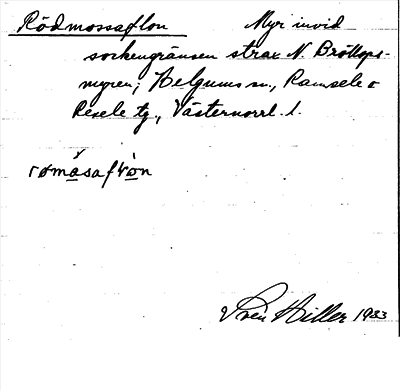 Rödmossaflon Myr invid
sockengränsen strax N. Bröttops-
myren; Helgums sn., Ramsele o
Resele tg., Västernorrl. l.
rømåsafꞁòn
Sven Hiller 1933